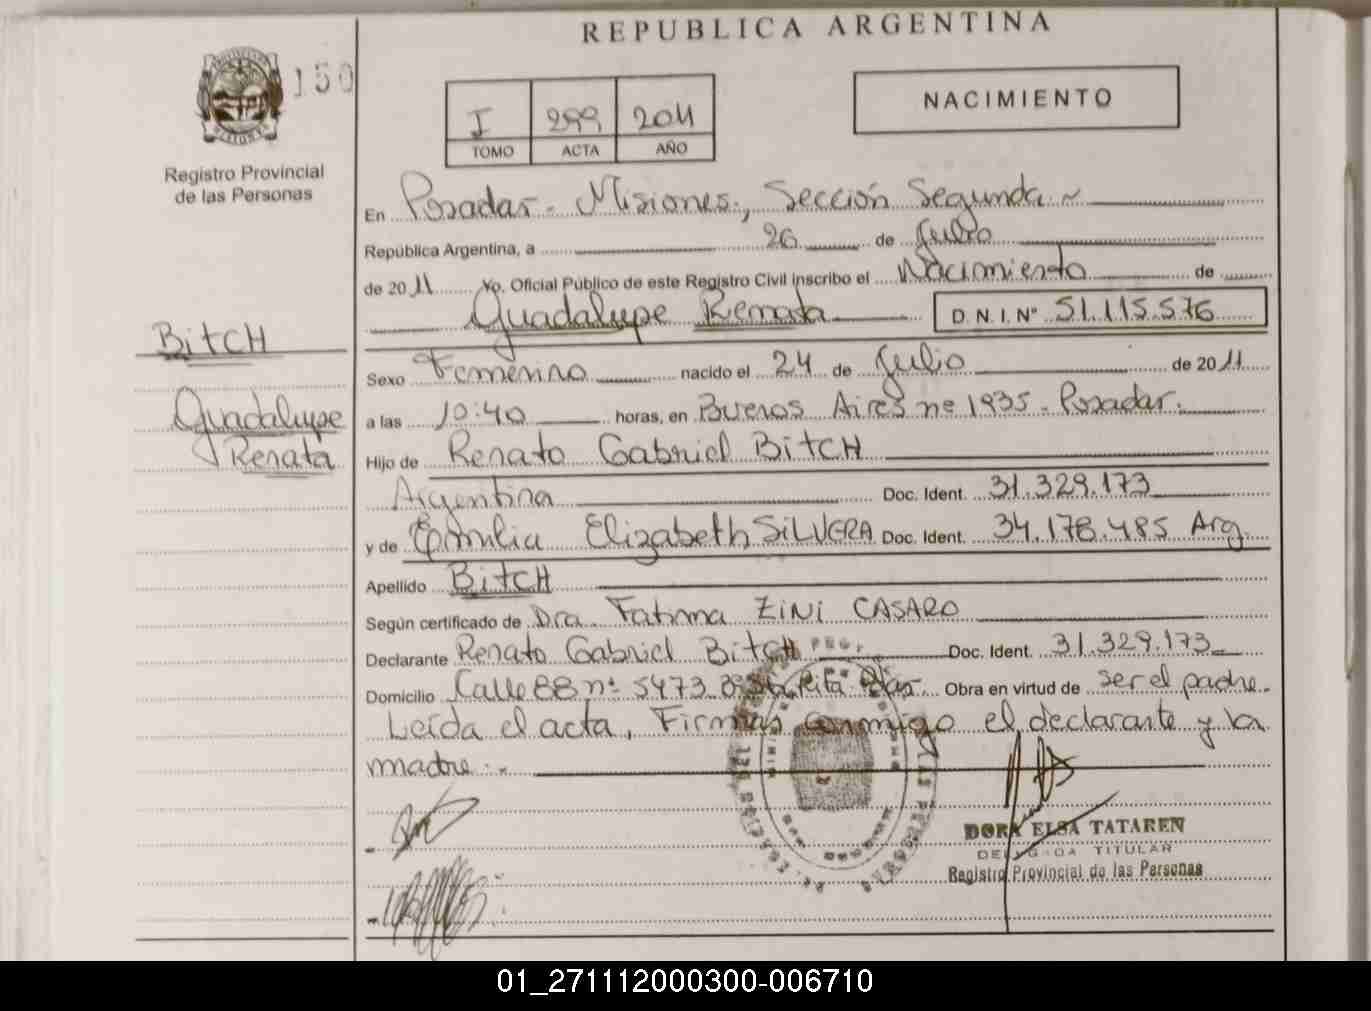 REPUBLICA ARGENTINA
150
Registro Provincial
de las Personas
I 299 2011
TOMO ACTA AÑO
NACIMIENTO
En Posadas - Misiones, Sección Segunda
República Argentina, a 26 de Julio
de 2011 Yo, Oficial Público de este Registro Civil inscribo el Nacimiento de
Guadalupe Renata D.N.I.Nº 51.115.576
BitCH
Guadalupe
Renata
Sexo Femenino nacido el 24 de Julio de 2011
a las 10:40 horas, en Buenos Aires nº 1935 - Posadas.
Hijo de Renato Gabriel BitCH
Argentina Doc. Ident. 31.329.173
y de Emilia Elizabeth SiLVERA Doc. Ident. 34.178.485 Arg.
Apellido BitCH
Según certificado de Dra. Fatima ZiNi CASARO
Declarante Renato Gabriel BitCH Doc. Ident. 31.329.173
Domicilio Calle 88 nº 5473 Rita Obra en virtud de ser el padre.
Leída el acta, Firman conmigo el declarante y la
madre.-
DORA ELSA TATAREN
DELEGADA TITULAR
Registro Provincial de las Personas
01_271112000300-006710